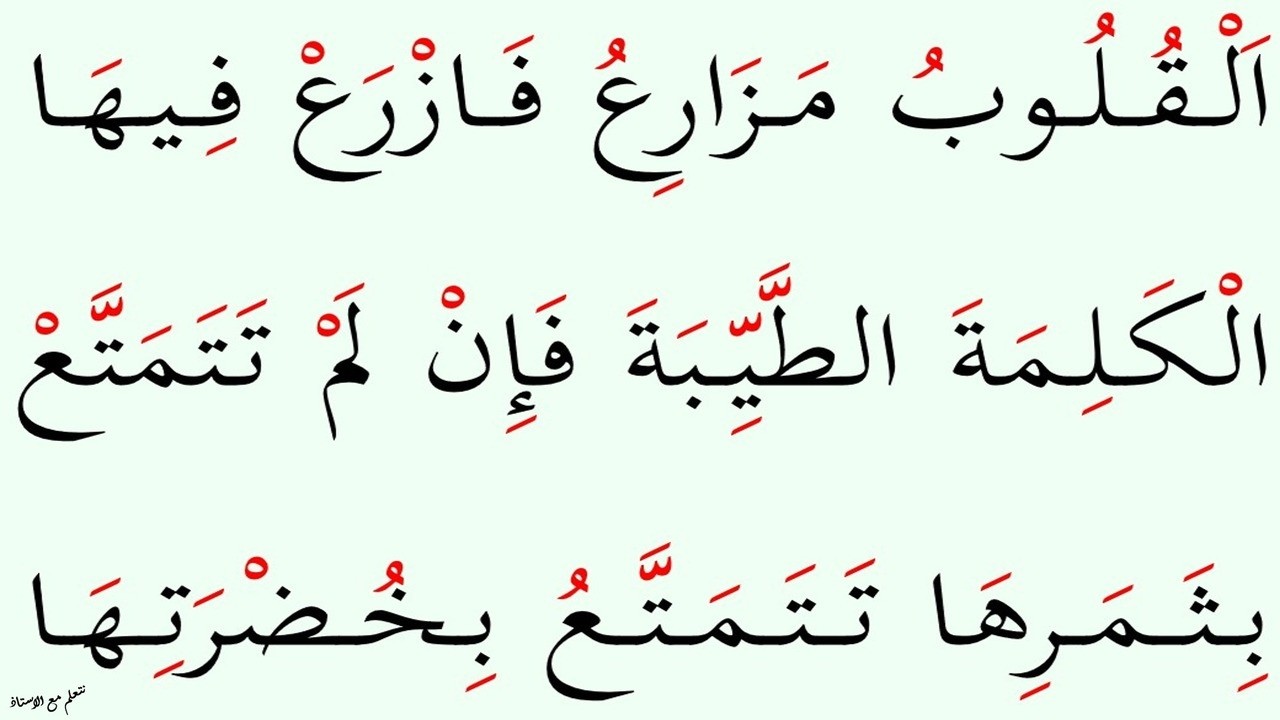 اَلْقُلُوبُ مَزَارِعُ فَازْرَعْ فِيهَا
الْكَلِمَةَ الطَّيِّبَةَ فَإِنْ لَمْ تَتَمَتَّعْ
بِثَمَرِهَا تَتَمَتَّعُ بِخُضْرَتِهَا
نتعلم مع الاستاذ